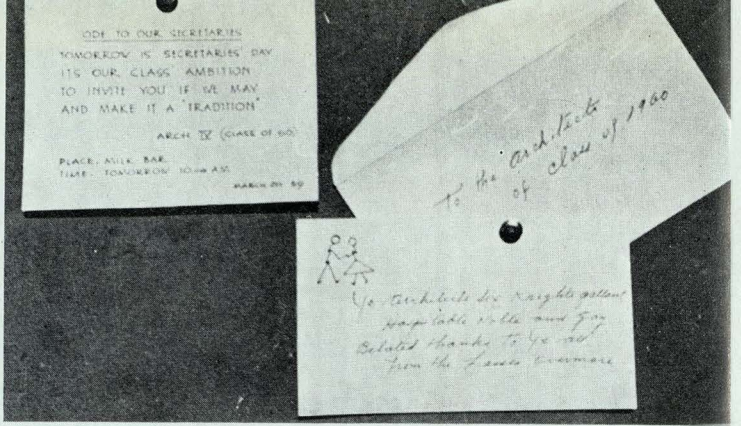 ODE TO OUR SECRETARIES
TOMORROW IS SECRETARIES' DAY
ITS OUR CLASS' AMBITION
TO INVITE YOU IF WE MAY
AND MAKE IT A "TRADITION"
ARCH IV (CLASS OF 60)
PLACE. MILK BAR
TIME. TOMORROW 10:00 AM
MARCH 59
To the architects
of class of 1960
Yo Architects six Knights gallant
Hospitable and gay
Belated thanks to Ye all
from the evermore